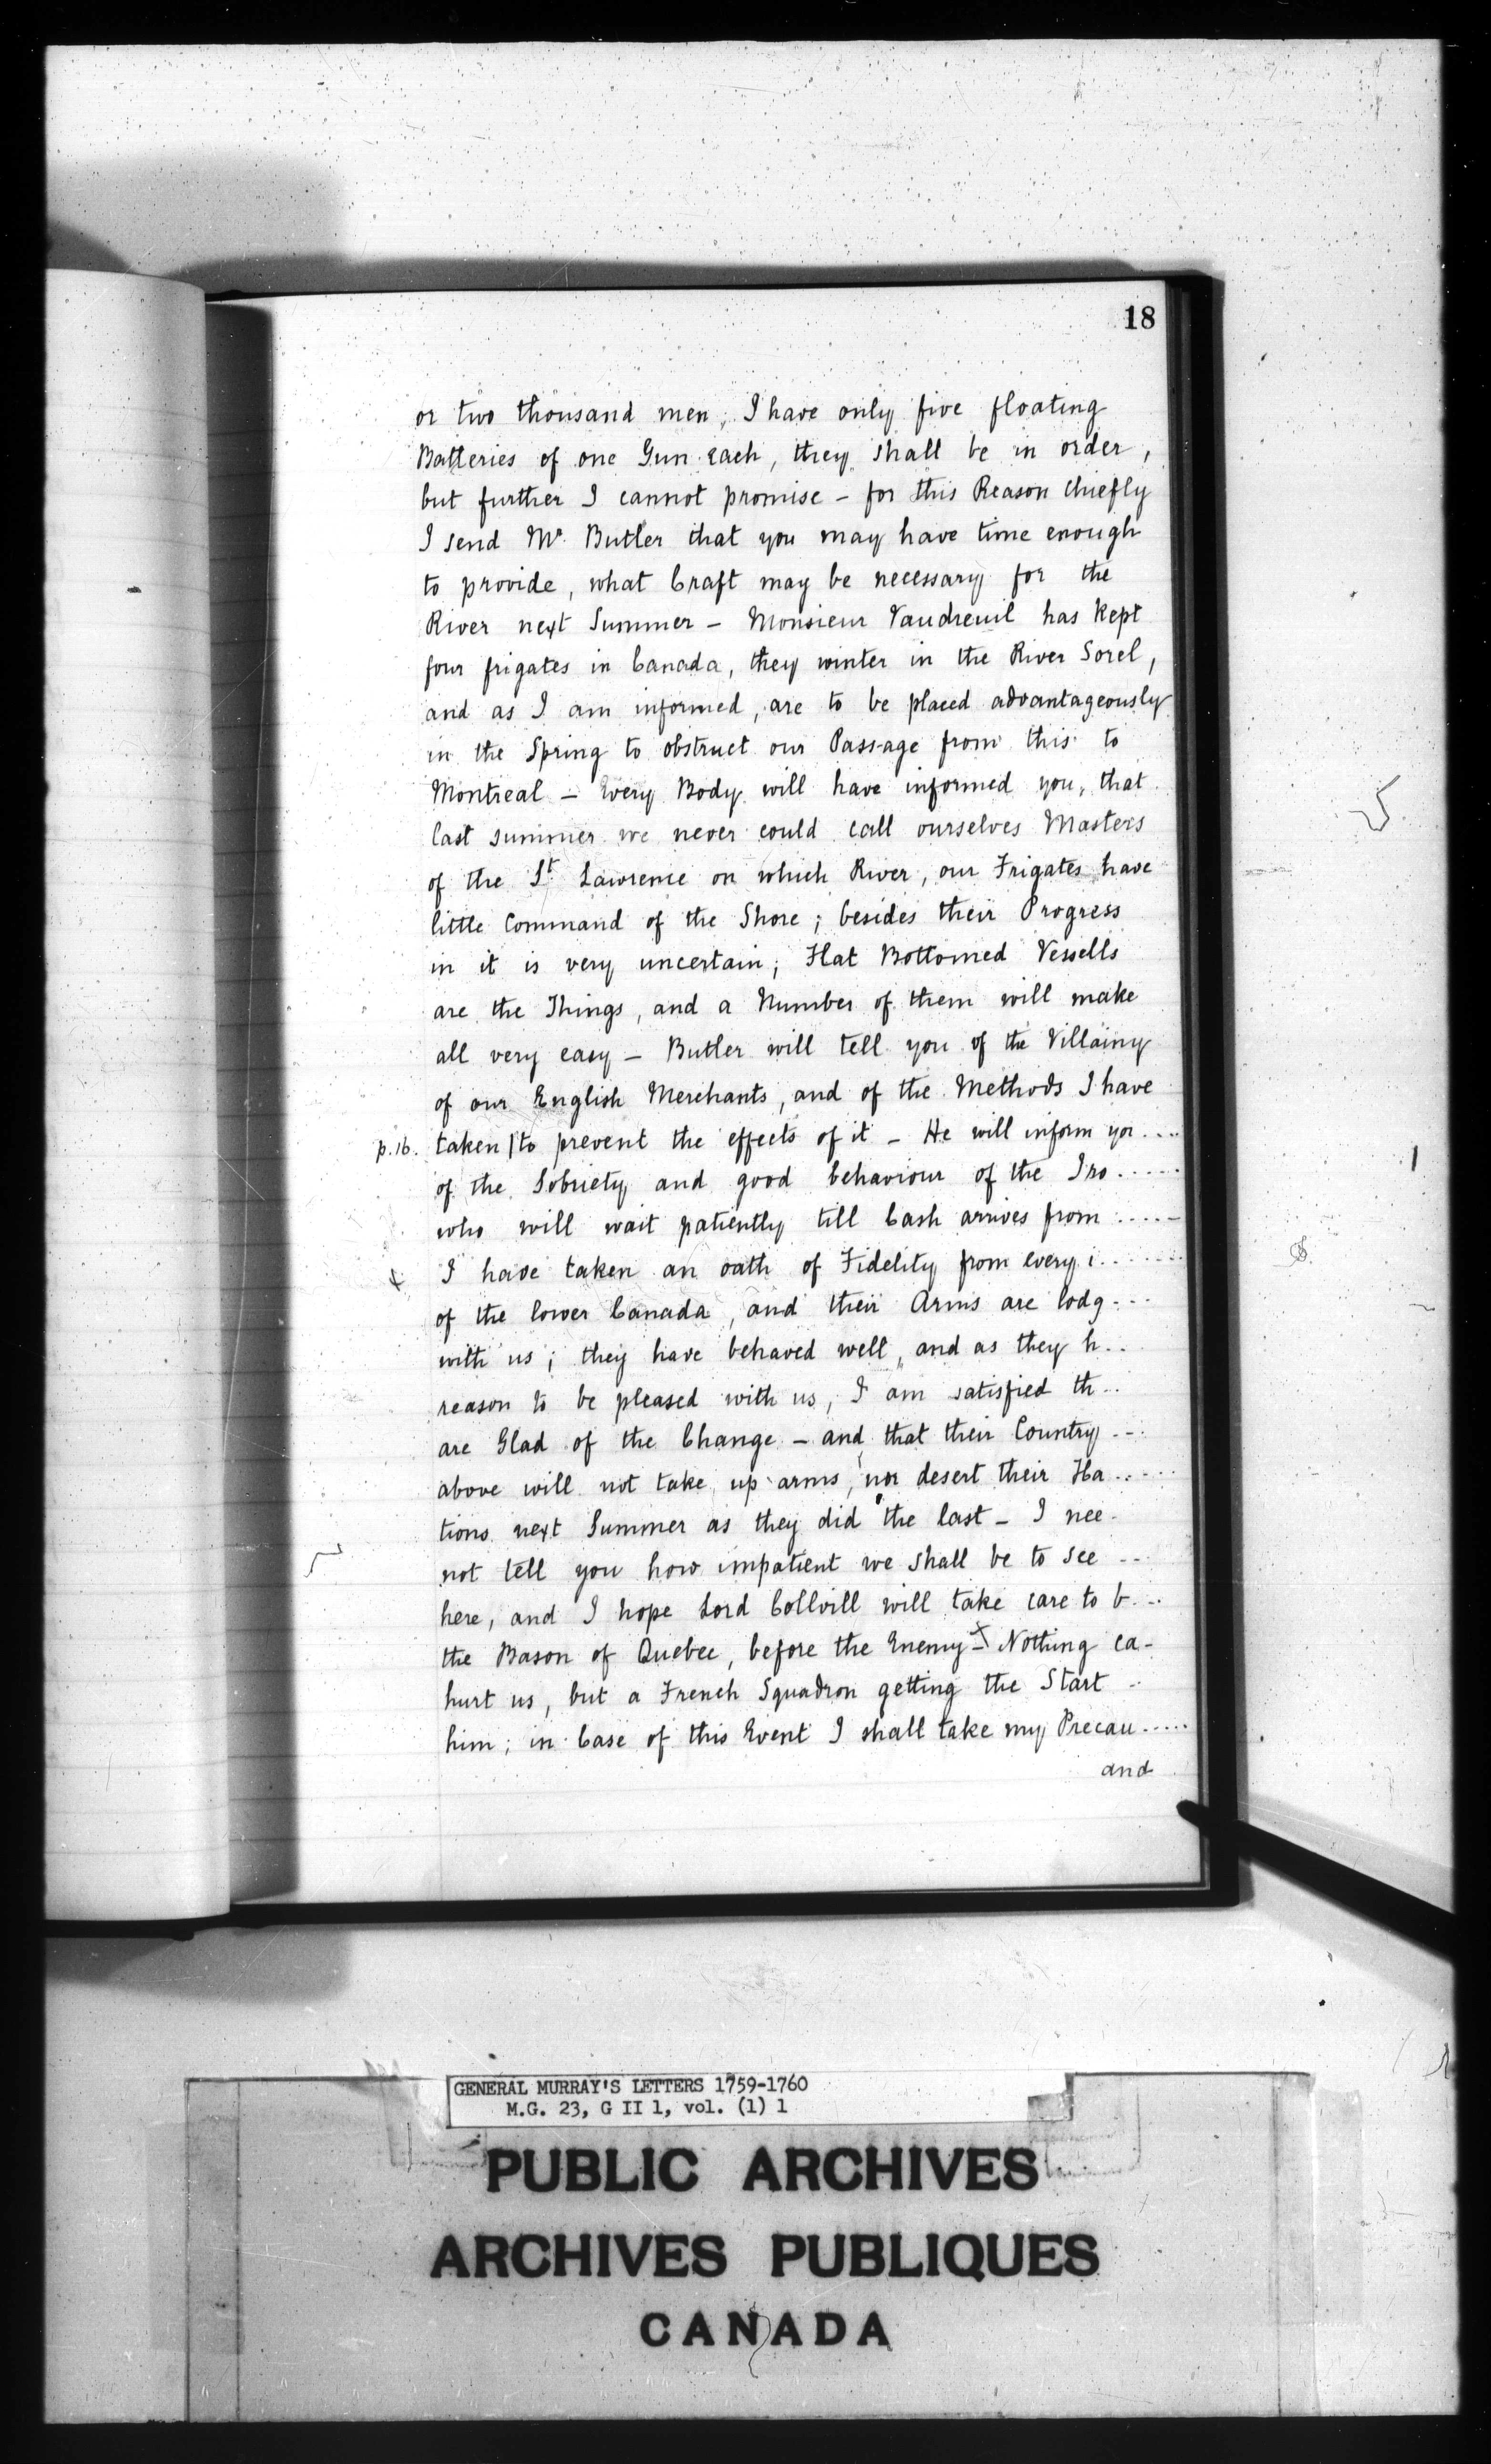 18
or two thousand men; I have only five floating
Batteries of one Gun each, they shall be in order,
but further I cannot promise – for this Reason chiefly
I send Mr. Butler that you may have time enough
to provide, what Craft may be necessary for the
River next Summer – Monsieur Vaudreuil has kept
four frigates in Canada, they winter in the River Sorel,
and as I am informed, are to be placed advantageously
in the Spring to obstruct our Passage from this to
Montreal – Every Body will have informed you, that
last summer we never could call ourselves Masters
of the St. Lawrence on which River, our Frigates have
little Command of the Shore; besides their Progress
in it is very uncertain; Flat Bottomed Vessells
are the Things, and a Number of them will make
all very easy – Butler will tell you of the Villainy
of our English Merchants, and of the Methods I have
p.16. taken | to prevent the effects of it – He will inform yo....
of the Sobriety and good behaviour of the Tro.....
who will wait patiently till Cash arrives from .....
x I have taken an oath of Fidelity from every i.......
of the lower Canada, and their Arms are lodg...
with us; they have behaved well, and as they h..
reason to be pleased with us, I am satisfied th..
are Glad of the Change – and that their Country...
above will not take up arms, nor desert their Ha.....
tions next Summer as they did the last – I nee.
not tell you how impatient we shall be to see ...
here, and I hope Lord Collvill will take care to b...
the Bason of Quebec, before the Enemy – x Nothing ca-
hurt us, but a French Squadron getting the Start ..
him; in Case of this Event I shall take my Precau.....
and
GENERAL MURRAY'S LETTERS 1759-1760
M.G. 23, G II 1, vol. (1) 1
PUBLIC ARCHIVES
ARCHIVES PUBLIQUES
CANADA